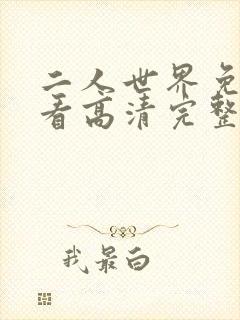 二人世界免
看高清完整
我最白